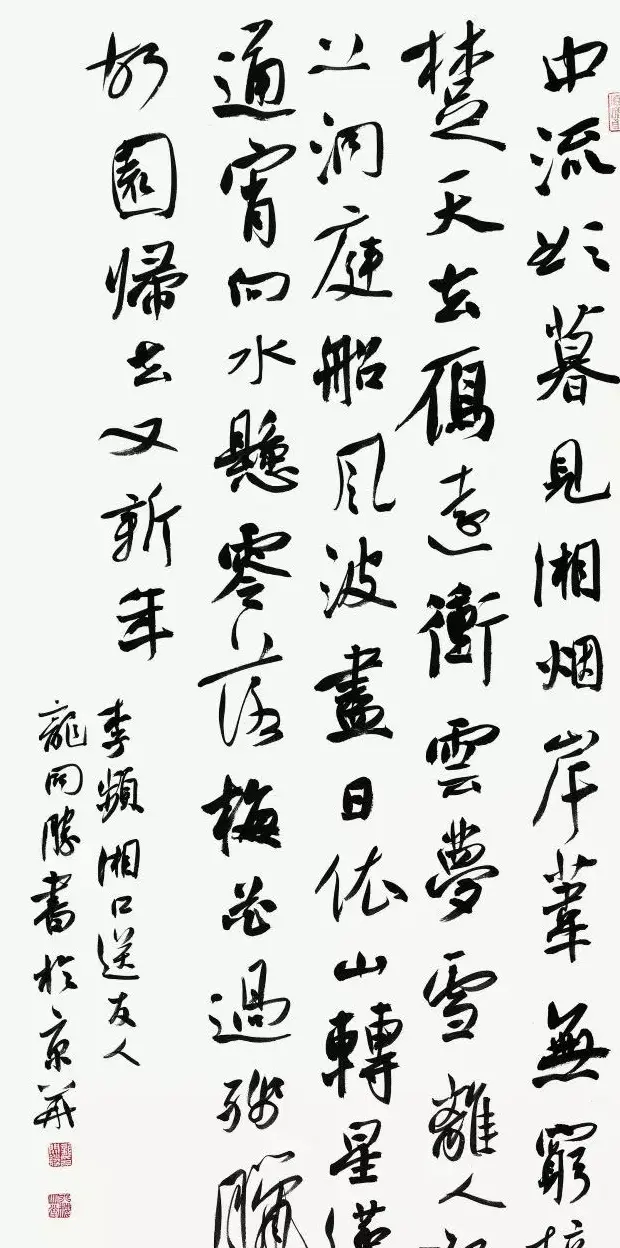 中流欲暮見湘烟岸葦無窮
楚天去雁遠衝雲夢雪離人
上洞庭船風波盡日依山轉星漢
通宵向水懸零落梅花過殘臘
故園歸去又新年
李頻湘口送友人
龍開勝書於京華